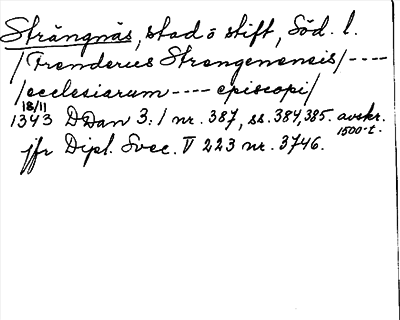 Strängnäs, stad o stift, Söd. l.
/Frendericus Strengenensis/ ----
/ecclesiarum ---- episcopi/
18/11
1343 DDan 3:1 nr. 387, ss. 384, 385. avskr.
1500-t.
jfr Dipl. Svec. V 223 nr. 3746.